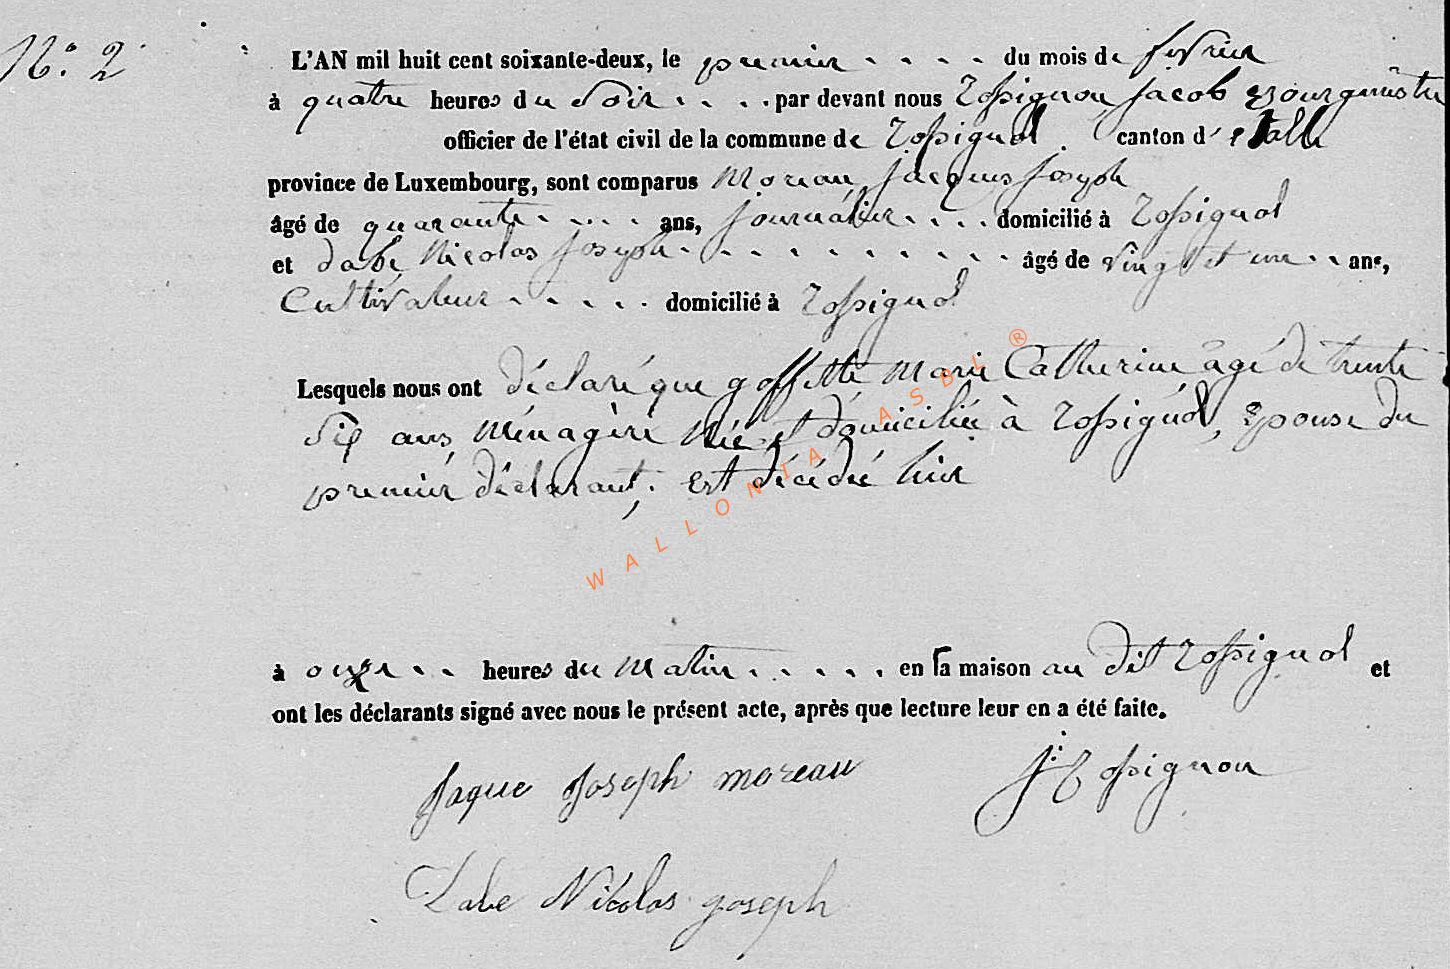 N.° 2
L'AN mil huit cent soixante-deux, le premier . . . . du mois de fevrier
à quatre heures du soir . . . . par devant nous Rossignon jacob Bourgmestre
officier de l'état civil de la commune de Rossignol . canton d'etalle
province de Luxembourg, sont comparus Moreau, jacques joseph
âgé de quarante . . . . ans, journalier . . . . domicilié à Rossignol
et Labe Nicolas joseph . . . . . . . . . . âgé de vingt et un . . ans,
Cultivateur . . . . . domicilié à Rossignol
Lesquels nous ont déclaré que goffette Marie Catherine âgé de trente
six ans, Ménagère Née et domiciliée à Rossignol, Epouse du
premier déclarant, est décédée hier
WALLONIA ASBL ®
à onze . . heures du matin . . . . . en sa maison au dit Rossignol et
ont les déclarants signé avec nous le présent acte, après que lecture leur en a été faite.
Jaque Joseph moreau
J: Rossignon
Labe Nicolas joseph